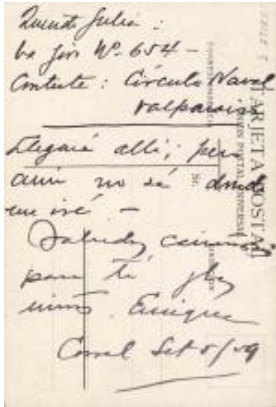 Querido Julio:
Va giro Nº 654 -
Conteste: Círculo Naval
Valparaiso
Llegaré alli; pero
aún no sé donde
me iré -
Saludos cariñosos
para ti y los
niños. Enrique
Corral Set 5/09
TARJETA POSTAL
UNION POSTAL UNIVERSAL